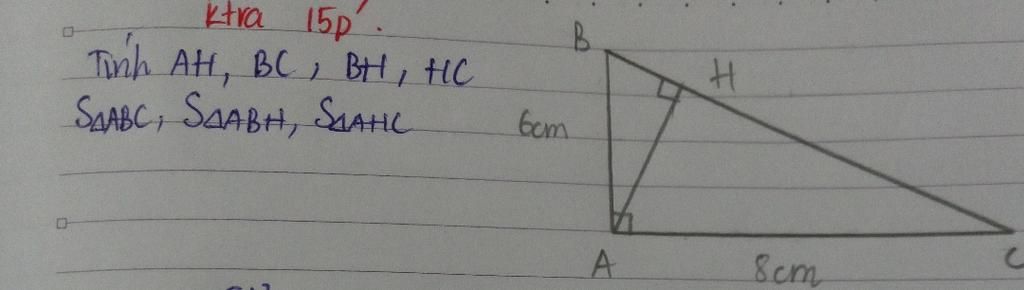 Ktra 15p'.
Tính AH, BC, BH, HC
SΔABC, SΔABH, SΔAHC
B
H
6cm
A
8cm
C